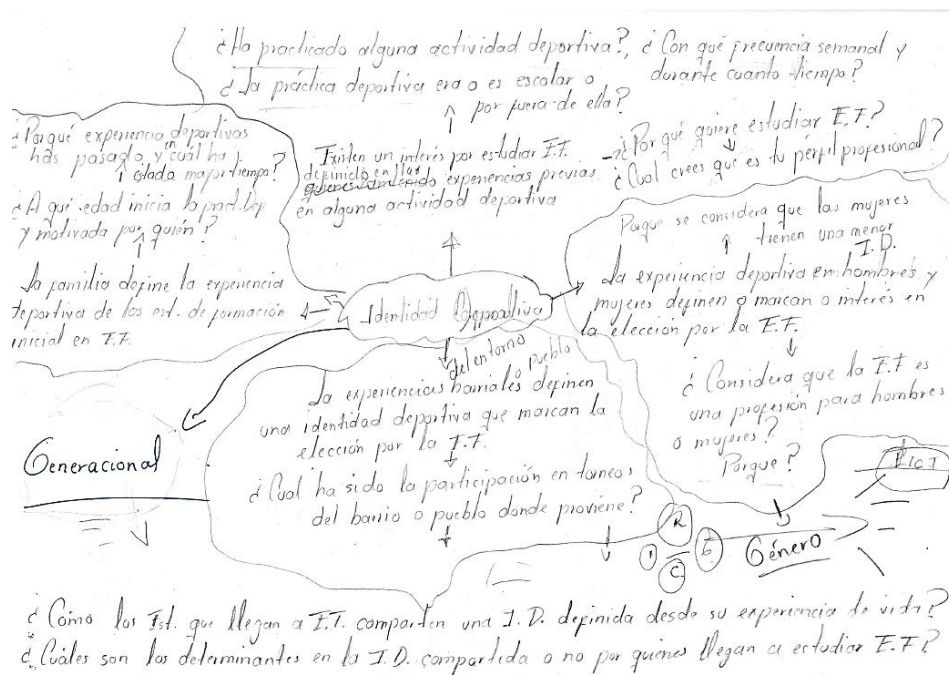 ¿Ha practicado alguna actividad deportiva?, ¿Con qué frecuencia semanal y
durante cuanto tiempo?
¿La práctica deportiva era o es escolar o
por fuera de ella?
¿Porqué experiencia deportivas
has pasado, y en cuál ha
estado mayor tiempo?
¿A qué edad inicia la pract. Dep
y motivada por quién?
La familia define la experiencia
deportiva de los est. de formación
inicial en E.F.
Existen un interés por estudiar E.F.
definido en las
experiencias previas
en alguna actividad deportiva
¿Por qué quiere estudiar E.F.?
¿Cual crees que es tu perfil profesional?
Porque se considera que las mujeres
tienen una menor
I.D.
La experiencia deportiva en hombres y
mujeres definen o marcan o interés en
la elección por la E.F.
¿Considera que la E.F es
una profesión para hombres
o mujeres?
Porque?
Identidad Deportiva
del entorno
o pueblo
La experiencias barriales definen
una identidad deportiva que marcan la
elección por la E.F.
¿Cual ha sido la participación en torneos
del barrio o pueblo donde proviene?
Generacional
R
C
Género
¿Cómo los Est. que llegan a E.F. comparten una I.D. definida desde su experiencia de vida?
¿Cuáles son los determinantes en la I.D. compartida o no por quienes llegan a estudiar E.F?